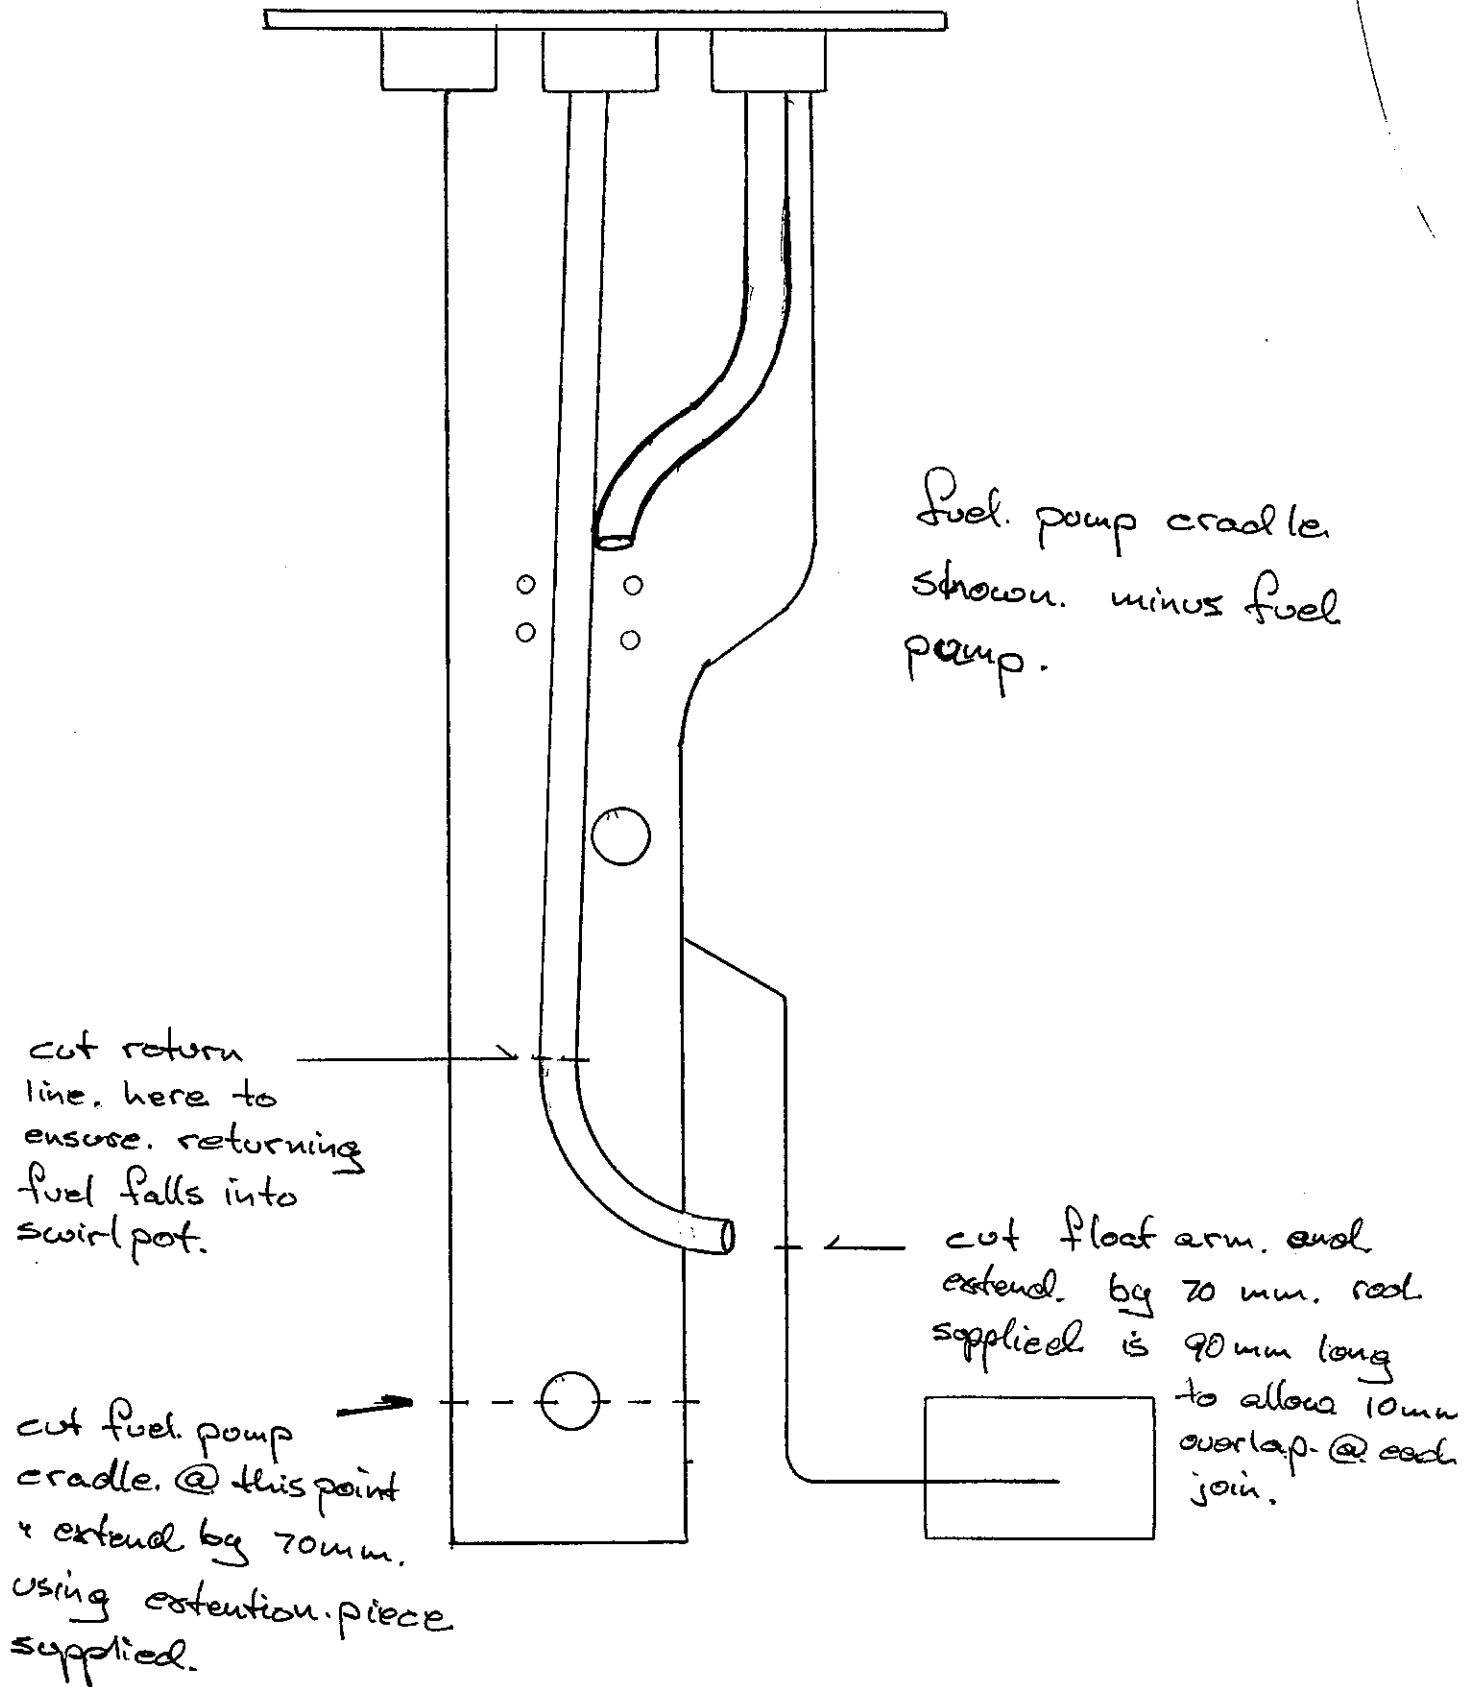 fuel. pump cradle.
shown. minus fuel
pump.
cut return
line. here to
ensure. returning
fuel falls into
swirlpot.
cut float arm. and
extend. by 70 mm. rod
supplied is 90mm long
to allow 10mm
overlap. @ each
join.
cut fuel. pump
cradle. @ this point
& extend by 70mm.
using extention. piece
supplied.